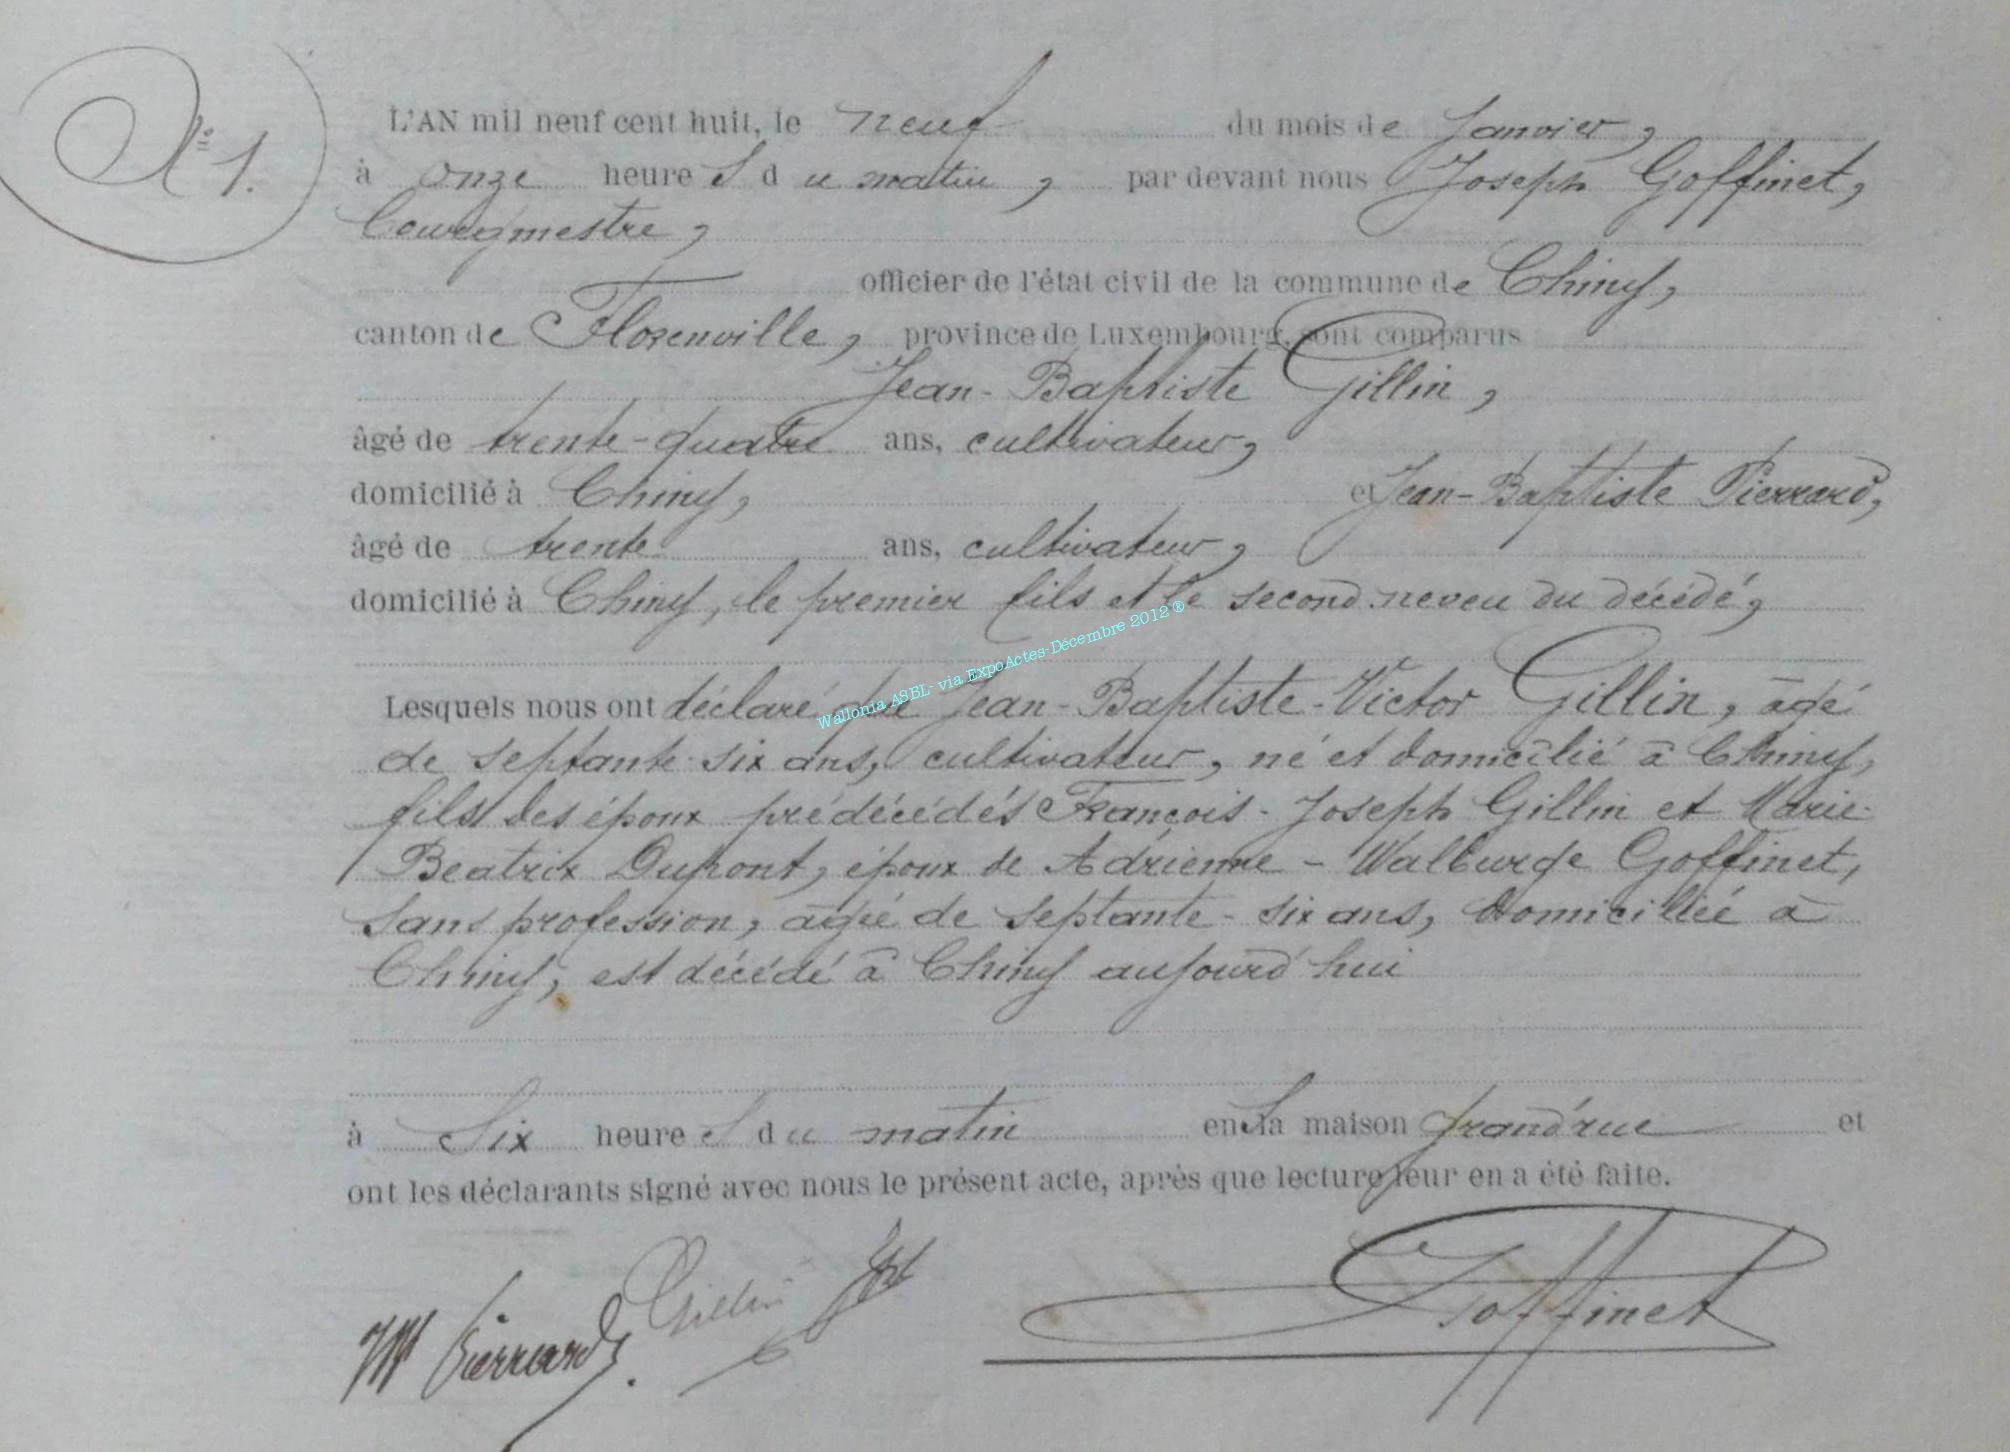 N° 1.
L'AN mil neuf cent huit, le neuf du mois de Janvier,
à onze heures du matin, par devant nous Joseph Goffinet,
bourgmestre,
officier de l'état civil de la commune de Chiny,
canton de Florenville, province de Luxembourg, sont comparus
Jean-Baptiste Gillin,
âgé de trente-quatre ans, cultivateur,
domicilié à Chiny, et Jean-Baptiste Pierrard,
âgé de trente ans, cultivateur,
domicilié à Chiny, le premier fils et le second neveu du décédé,
Lesquels nous ont déclaré que Jean-Baptiste-Victor Gillin, âgé
de septante-six ans, cultivateur, né et domicilié à Chiny,
fils des époux prédécédés François-Joseph Gillin et Marie-
Beatrix Dupont, époux de Adrienne-Walburge Goffinet,
sans profession, âgée de septante-six ans, domiciliée à
Chiny, est décédé à Chiny aujourd'hui
à Six heures du matin en sa maison grand'rue et
ont les déclarants signé avec nous le présent acte, après que lecture leur en a été faite.
Pierrard. Gillin Goffinet
Wallonia ASBL- via ExpoActes-Décembre 2012 ®